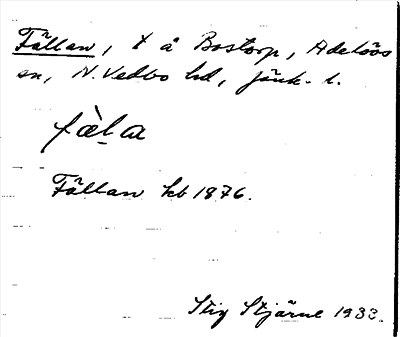 Fällan, t å Bostorp, Adelövs
sn, N. Vedbo hd, Jönk. l.
fæ̀l̠a
Fällan kb 1876.
Stig Stjärne 1933.